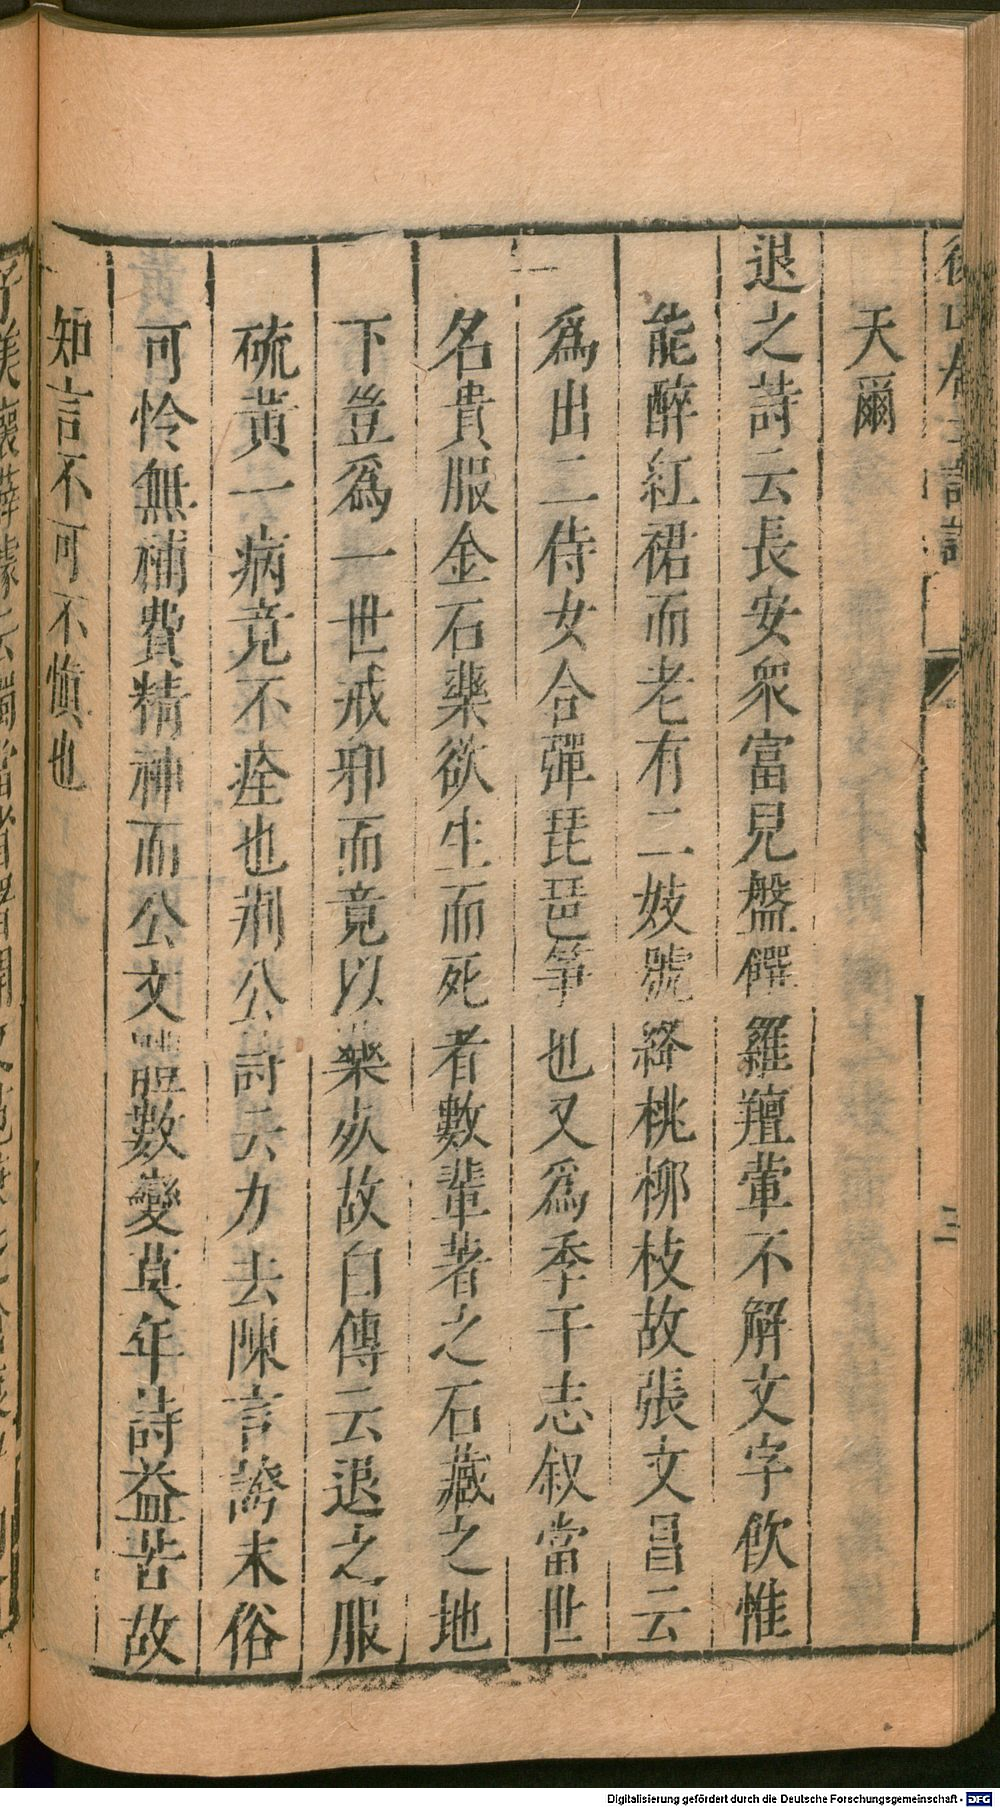 後山居士詩話
三
天爾
退之詩云長安衆富兒盤饌羅羶葷不解文字飲惟
能醉紅裙而老有二妓號絳桃柳枝故張文昌云
爲出二侍女合彈琵琶筝也又爲季于志叙當世
名貴服金石藥欲生而死者數輩著之石藏之地
下豈爲一世戒邪而竟以藥欬故白傳云退之服
硫黃一病竟不痊也荆公詩云力去陳言誇末俗
可怜無補費精神而公文體數變莫年詩益苦故
知言不可不慎也
Digitalisierung gefördert durch die Deutsche Forschungsgemeinschaft - DFG